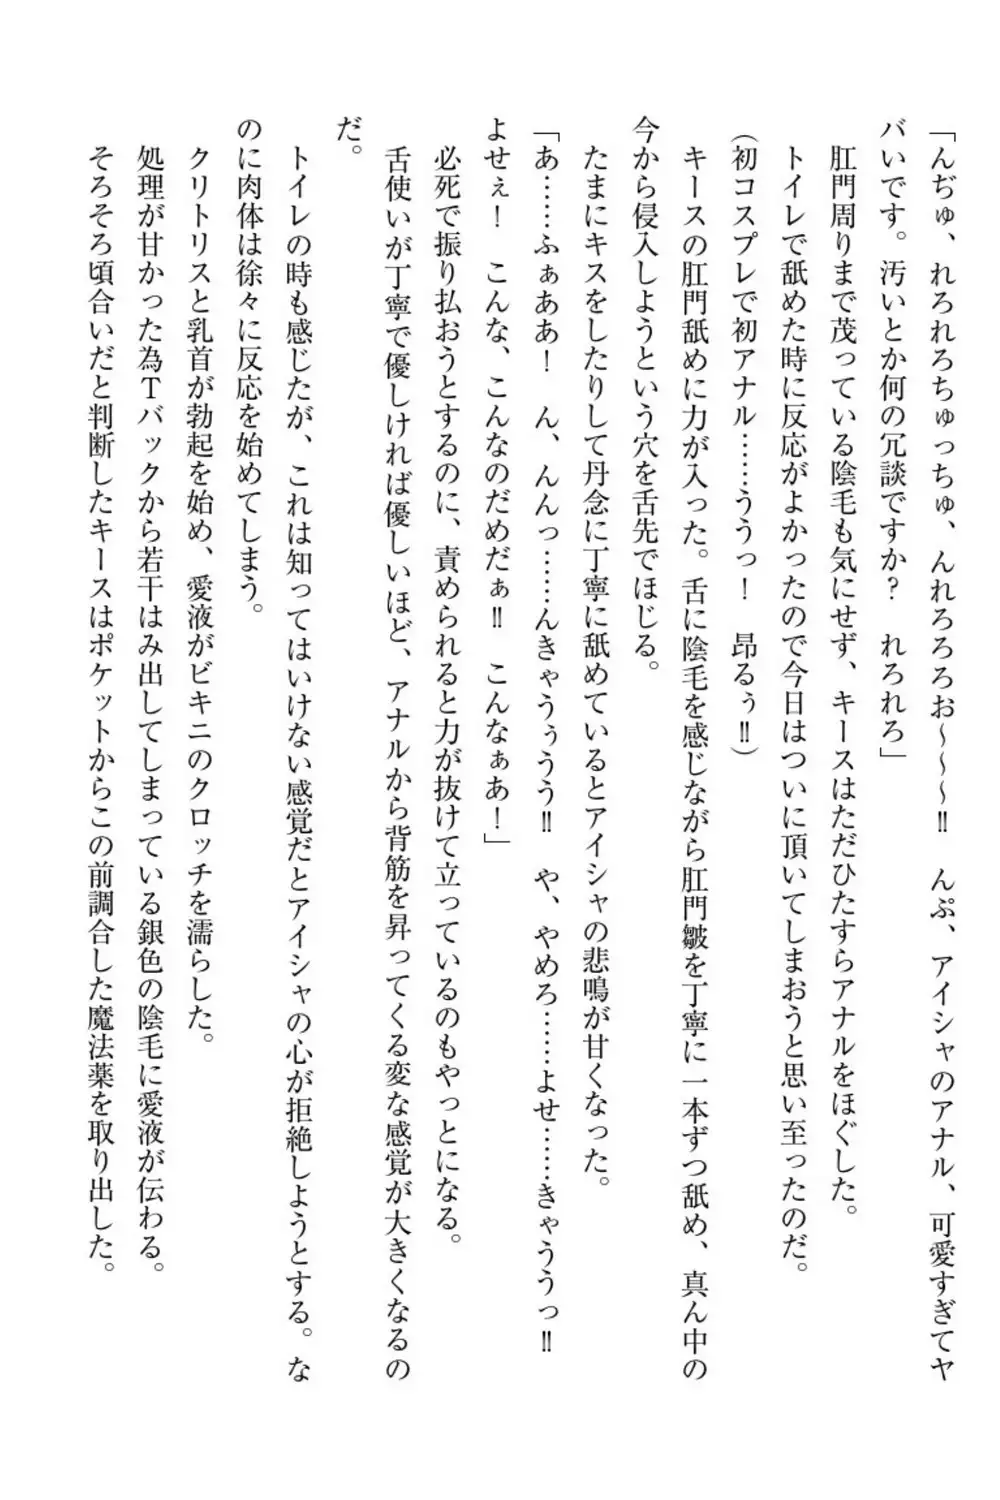 「んぢゅ、れろれろちゅっちゅ、んれろろろお～～～‼　んぷ、アイシャのアナル、可愛すぎてヤ
バいです。汚いとか何の冗談ですか？　れろれろ」
肛門周りまで茂っている陰毛も気にせず、キースはただひたすらアナルをほぐした。
トイレで舐めた時に反応がよかったので今日はついに頂いてしまおうと思い至ったのだ。
(初コスプレで初アナル……ううっ！　昂るぅ‼)
キースの肛門舐めに力が入った。舌に陰毛を感じながら肛門皺を丁寧に一本ずつ舐め、真ん中の
今から侵入しようという穴を舌先でほじる。
たまにキスをしたりして丹念に丁寧に舐めているとアイシャの悲鳴が甘くなった。
「あ……ふぁああ！　ん、んんっ……んきゃうぅうう‼　や、やめろ……よせ……きゃううっ‼
よせぇ！　こんな、こんなのだめだぁ‼　こんなぁあ！」
必死で振り払おうとするのに、責められると力が抜けて立っているのもやっとになる。
舌使いが丁寧で優しければ優しいほど、アナルから背筋を昇ってくる変な感覚が大きくなるの
だ。
トイレの時も感じたが、これは知ってはいけない感覚だとアイシャの心が拒絶しようとする。な
のに肉体は徐々に反応を始めてしまう。
クリトリスと乳首が勃起を始め、愛液がビキニのクロッチを濡らした。
処理が甘かった為Ｔバックから若干はみ出してしまっている銀色の陰毛に愛液が伝わる。
そろそろ頃合いだと判断したキースはポケットからこの前調合した魔法薬を取り出した。